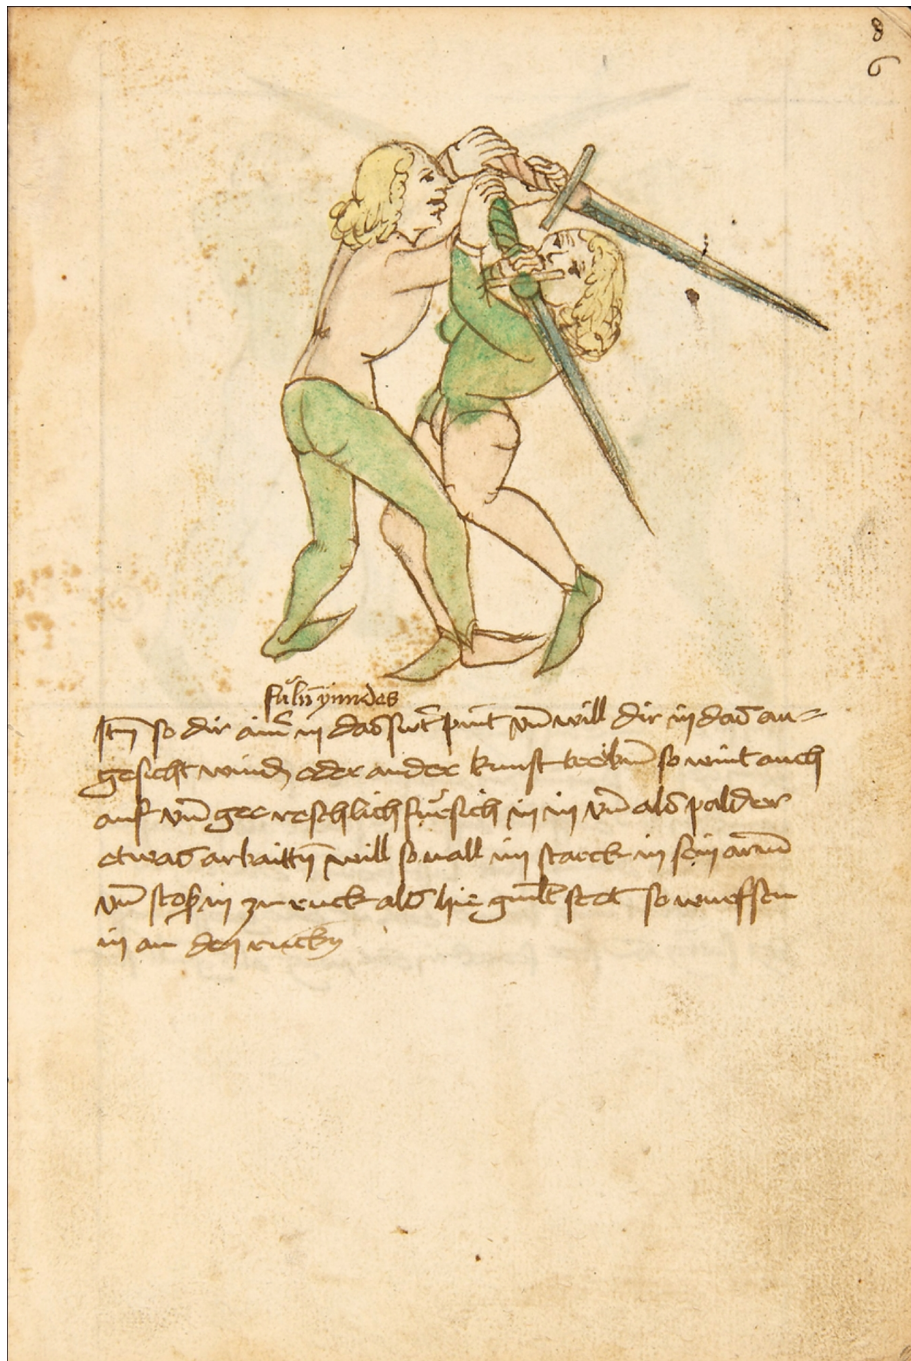 8
6
Itm so dir ainr in das swert pint vnd will dir in das an=
gesicht winden oder ander kunst treiben so wint auch
auf vnd gee reschlich fuesich in in vnd als palder
etwas arbaittn will so vall im starck in sein arm
vnd stoß in zu ruck als hie gmalt stet so
in an den rucky